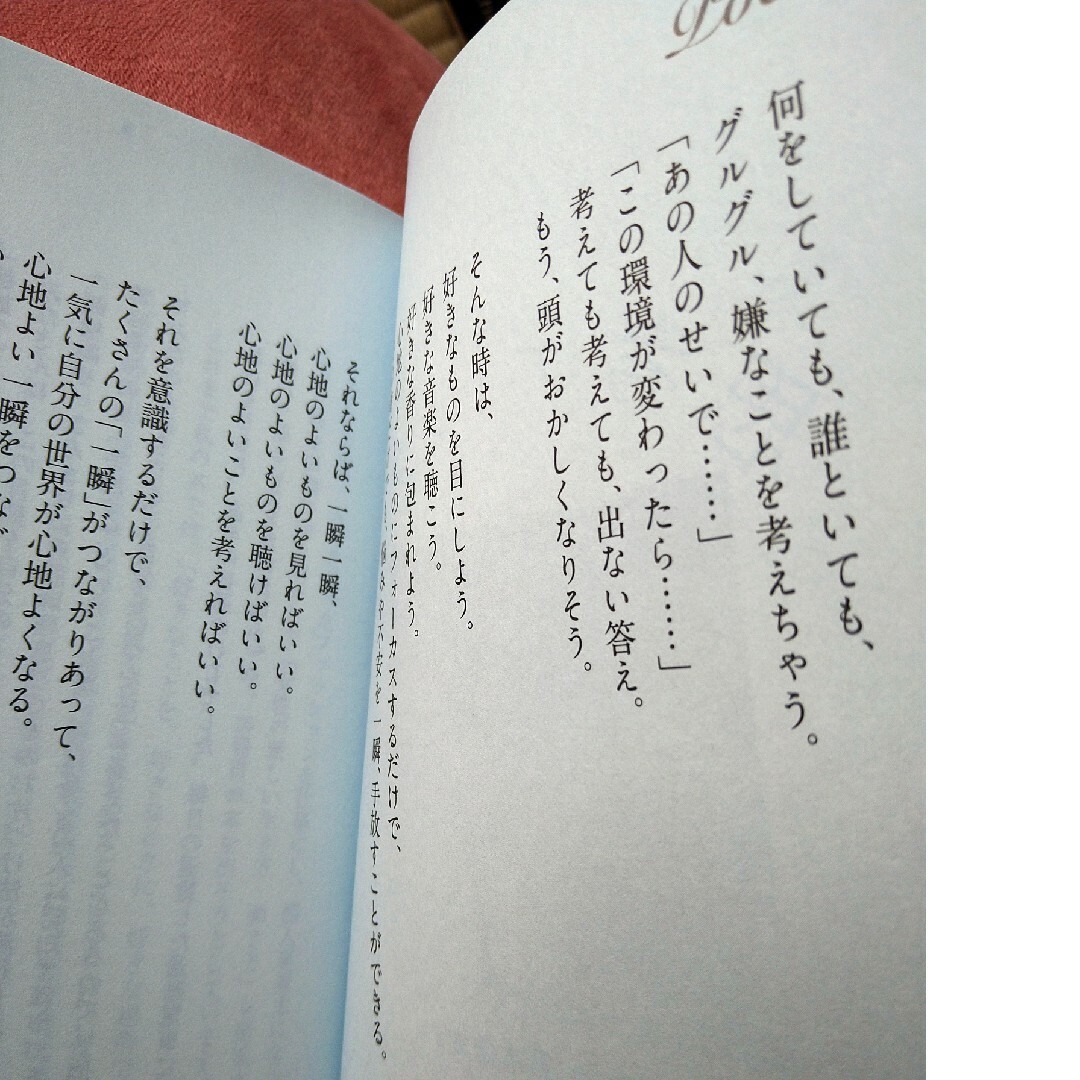 何をしていても、誰といても、
グルグル、嫌なことを考えちゃう。
「あの人のせいで……」
「この環境が変わったら……」
考えても考えても、出ない答え。
もう、頭がおかしくなりそう。
そんな時は、
好きなものを目にしよう。
好きな音楽を聴こう。
好きな香りに包まれよう。
心地のよいものにフォーカスするだけで、
悩みや不安を一瞬、手放すことができる。
それならば、一瞬一瞬、
心地のよいものを見ればいい。
心地のよいものを聴けばいい。
心地のよいことを考えればいい。
それを意識するだけで、
たくさんの「一瞬」がつながりあって、
一気に自分の世界が心地よくなる。
心地よい一瞬をつな